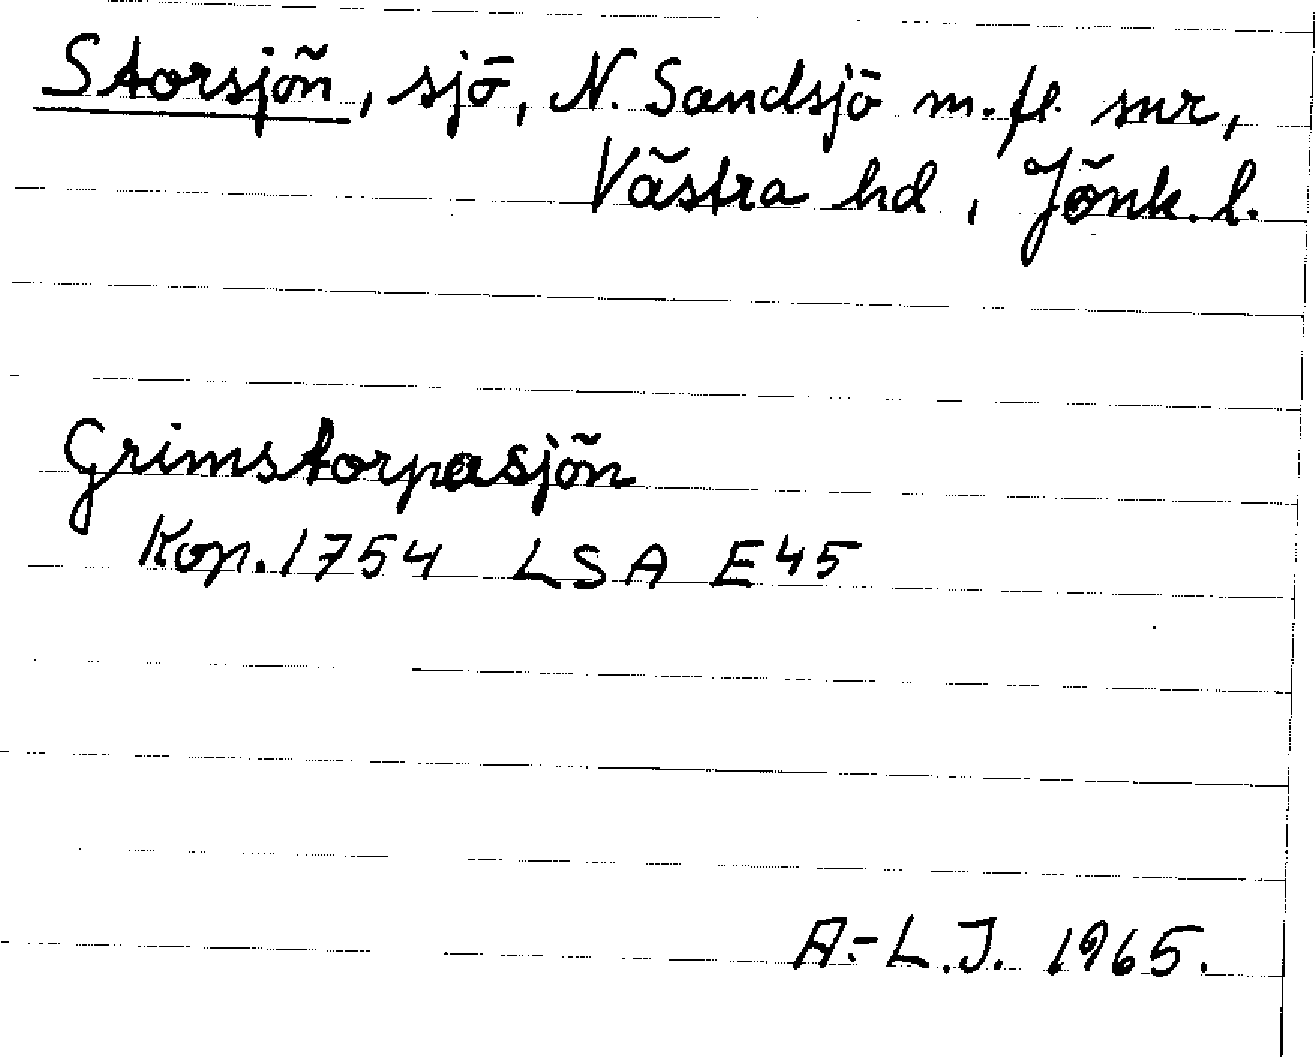 Storsjön, sjö, N. Sandsjö m.fl. snr,
Västra hd, Jönk. l.
Grimstorpasjön
Kop. 1754 LSA E45
A.-L.J. 1965.